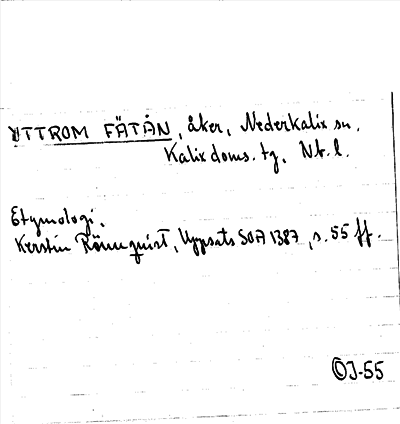 YTTROM FÄTÅN, åker, Nederkalix sn.
Kalix doms. tg. Nb. l.
Etymologi.
Kerstin Rönnquist, Uppsats SOA 1387, s. 55 ff.
ÖJ-55